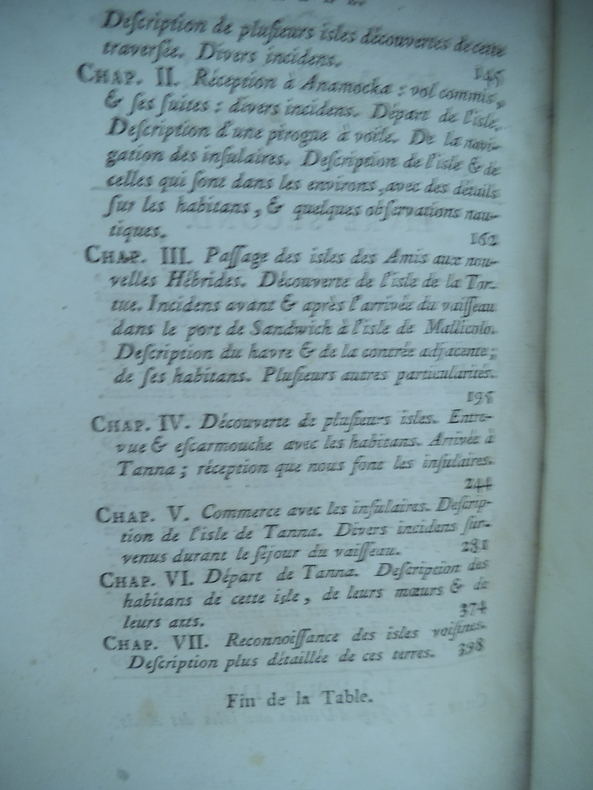 Deſcription de pluſieurs isles découvertes de cette
traverſée. Divers incidens. 145
CHAP. II. Réception à Anamocka : vol commis,
& ſes ſuites : divers incidens. Départ de l'iſle.
Deſcription d'une pirogue à voile. De la navi-
gation des inſulaires. Deſcription de l'iſle & de
celles qui ſont dans les environs, avec des détails
ſur les habitans, & quelques obſervations nau-
tiques. 162
CHAP. III. Paſſage des isles des Amis aux nou-
velles Hébrides. Découverte de l'isle de la Tor-
tue. Incidens avant & après l'arrivée du vaiſſeau
dans le port de Sandwich à l'isle de Mallicolo.
Deſcription du havre & de la contrée adjacente ;
de ſes habitans. Pluſieurs autres particularités.
195
CHAP. IV. Découverte de pluſieurs isles. Entre-
vue & eſcarmouche avec les habitans. Arrivée à
Tanna ; réception que nous font les inſulaires.
244
CHAP. V. Commerce avec les inſulaires. Deſcrip-
tion de l'isle de Tanna. Divers incidens ſur-
venus durant le ſéjour du vaiſſeau. 281
CHAP. VI. Départ de Tanna. Deſcription des
habitans de cette iſle, de leurs mœurs & de
leurs arts. 374
CHAP. VII. Reconnoiſſance des isles voiſines.
Deſcription plus détaillée de ces terres. 398
Fin de la Table.